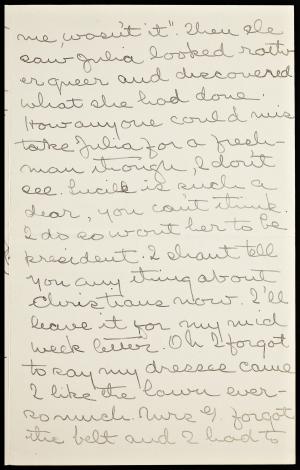 me, wasn't it". Then she
saw Julia looked rath-
er queer and discovered
what she had done.
How anyone could mis-
take Julia for a fresh-
man though, I don't
see. Lucile is such a
dear, you can't think.
I do so want her to be
president. I shan't tell
you any thing about
Christians now. I'll
leave it for my mid
week letter. Oh I forgot
to say my dresses came
I like the lawn ever-
so much. Mrs G. forgot
the belt and I had to